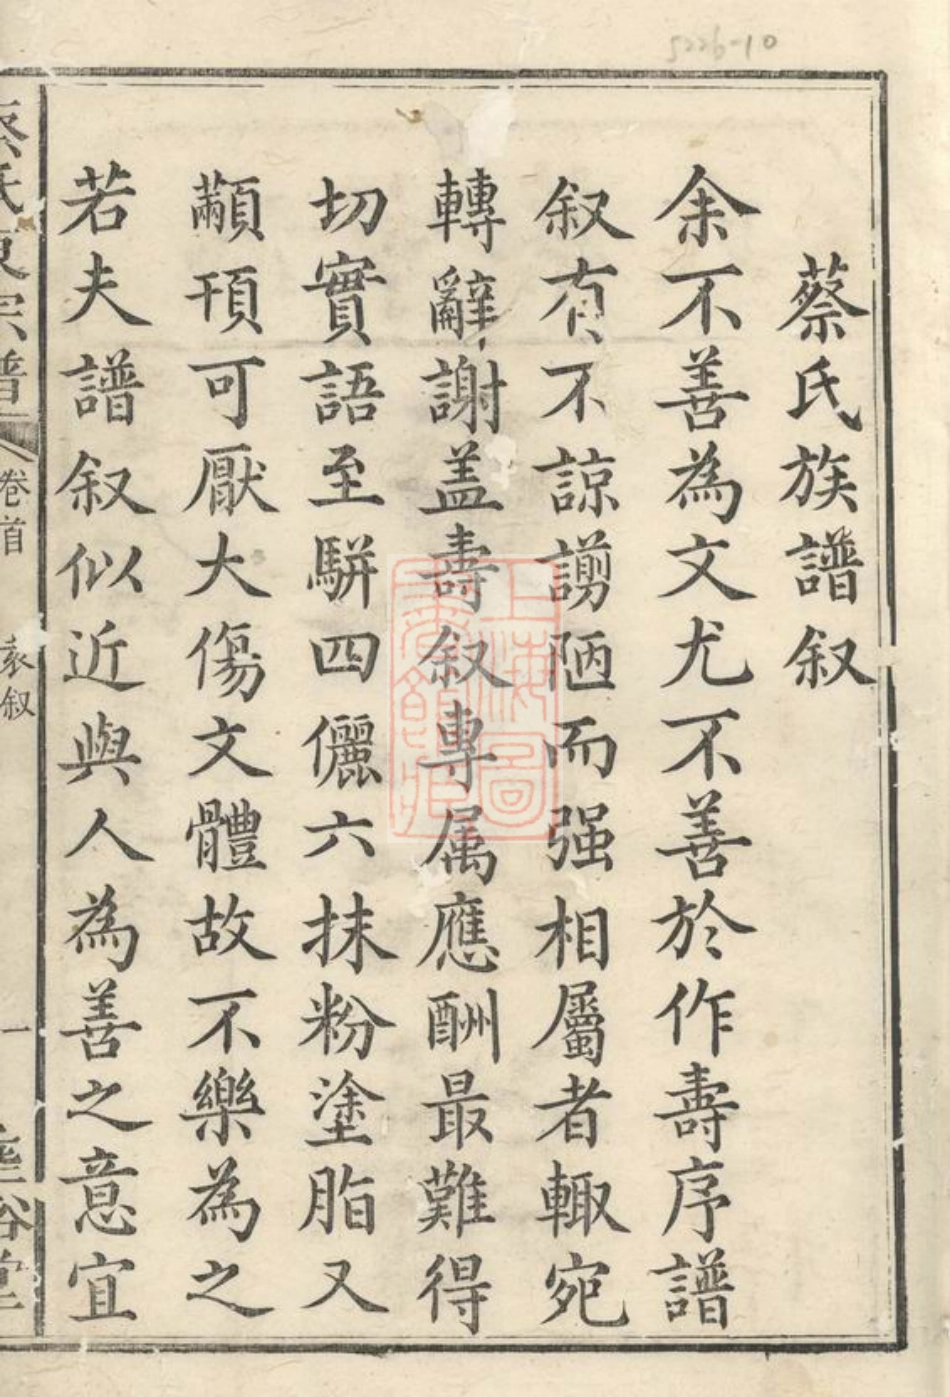 5226-10
蔡氏族譜叙
余不善為文尤不善於作壽序譜
叙有不諒謭陋而强相屬者輙宛
轉辭謝盖壽叙專属應酬最難得
切實語至駢四儷六抹粉塗脂又
顢頇可厭大傷文體故不樂為之
若夫譜叙似近與人為善之意宜
蔡氏東宗譜
卷首
袁叙
一
裕堂
上海圖書館藏